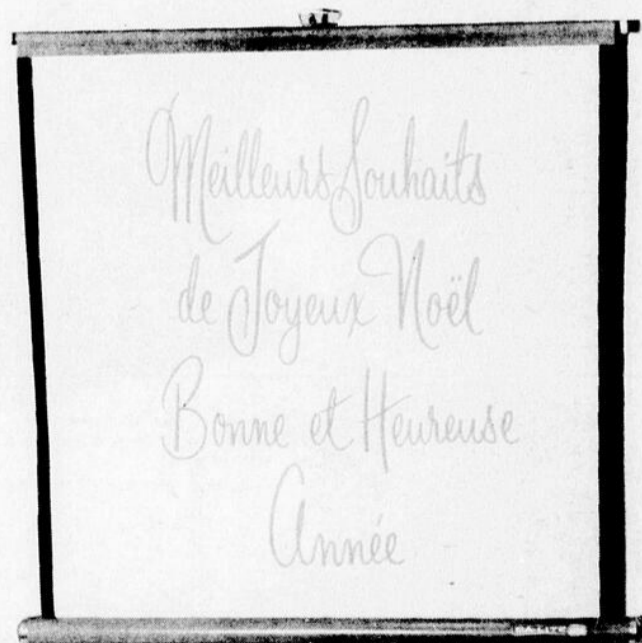 Meilleurs Souhaits
de Joyeux Noël
Bonne et Heureuse
Année